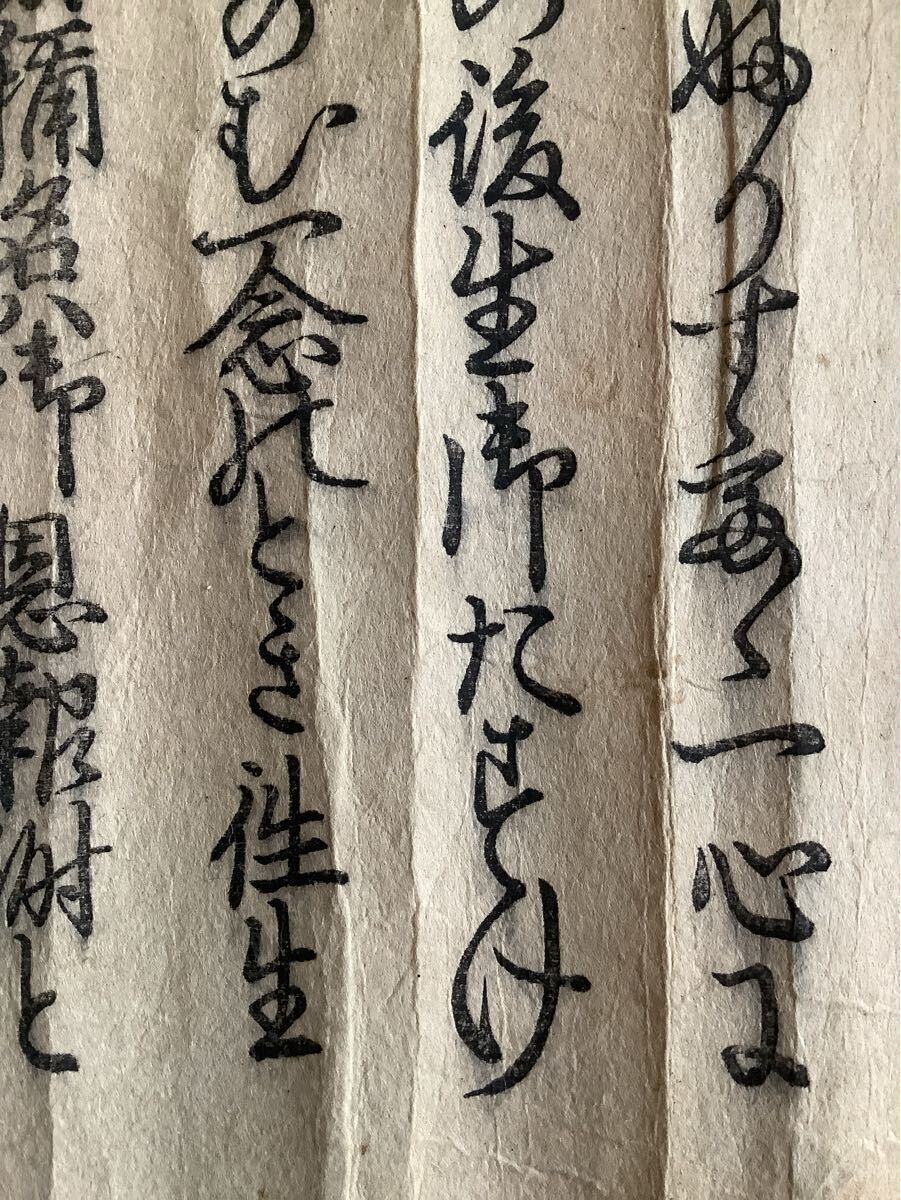 ふりすてゝ一心に
の後生御たすけ
のむ一念のとき往生
稱名ハ御恩報謝と